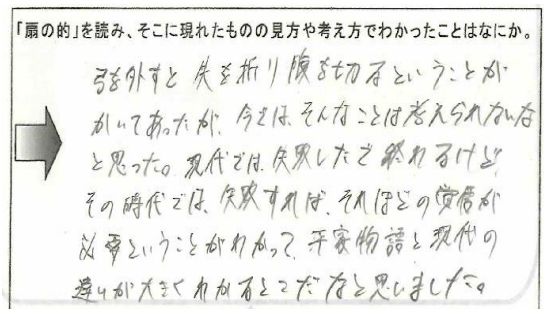 「扇の的」を読み、そこに現れたものの見方や考え方でわかったことはなにか。
弓を外すと矢を折り腹を切るということが
かいてあったが、今では、そんなことは考えられないな
と思った。現代では、失敗したで終れるけど
その時代では、失敗すれば、それほどの覚悟が
必要ということがわかって、平家物語と現代の
違いが大きくわかるとこだなと思いました。